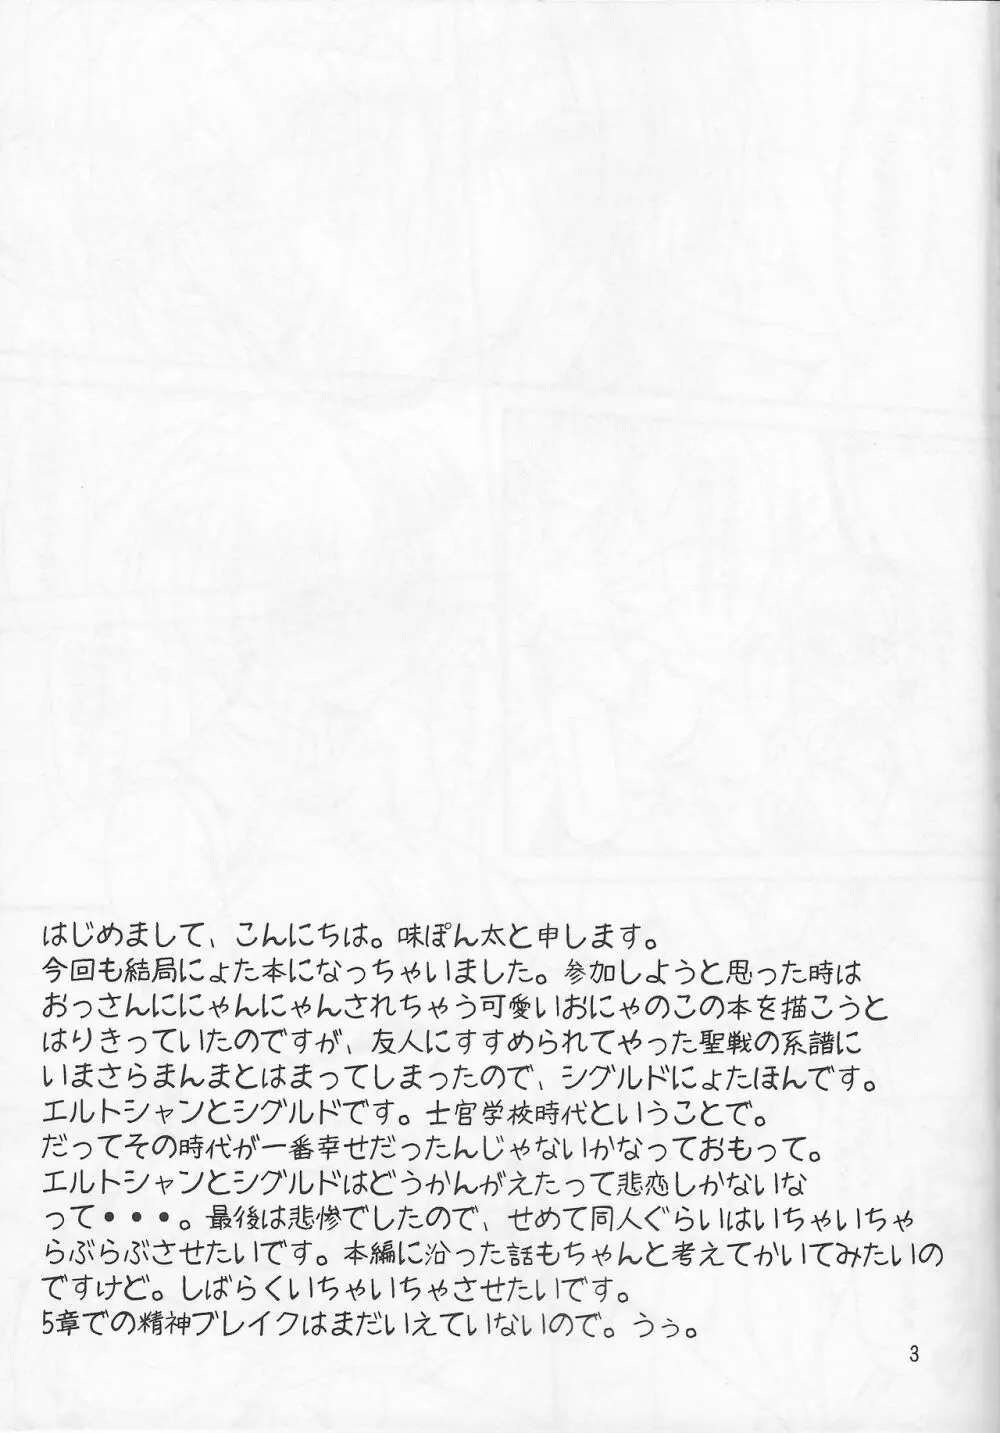 はじめまして、こんにちは。味ぽん太と申します。
今回も結局にょた本になっちゃいました。参加しようと思った時は
おっさんににゃんにゃんされちゃう可愛いおにゃのこの本を描こうと
はりきっていたのですが、友人にすすめられてやった聖戦の系譜に
いまさらまんまとはまってしまったので、シグルドにょたほんです。
エルトシャンとシグルドです。士官学校時代ということで。
だってその時代が一番幸せだったんじゃないかなっておもって。
エルトシャンとシグルドはどうかんがえたって悲恋しかないな
って・・・。最後は悲惨でしたので、せめて同人ぐらいはいちゃいちゃ
らぶらぶさせたいです。本編に沿った話もちゃんと考えてかいてみたいの
ですけど。しばらくいちゃいちゃさせたいです。
5章での精神ブレイクはまだいえていないので。うぅ。
3